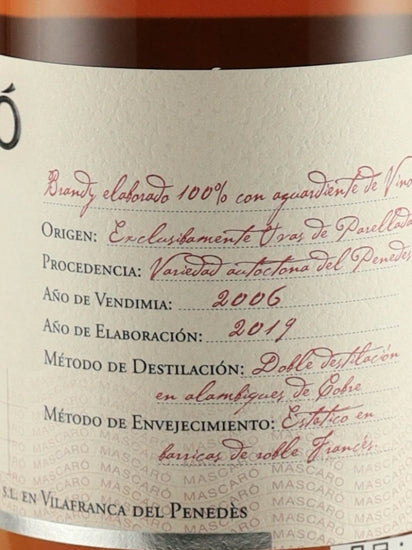 Ó
Brandy elaborado 100% con aguardiente de Vino
ORIGEN: Exclusibamente Uvas de Parellada
PROCEDENCIA: Variedad autoctona del Penedes
AÑO DE VENDIMIA: 2006
AÑO DE ELABORACIÓN: 2019
MÉTODO DE DESTILACIÓN: Doble destilación
en alambiques de Cobre
MÉTODO DE ENVEJECIMIENTO: Estatico en
barricas de roble Francés.
MASCARÓ MASCARÓ MASCARÓ
S.L. EN VILAFRANCA DEL PENEDÈS